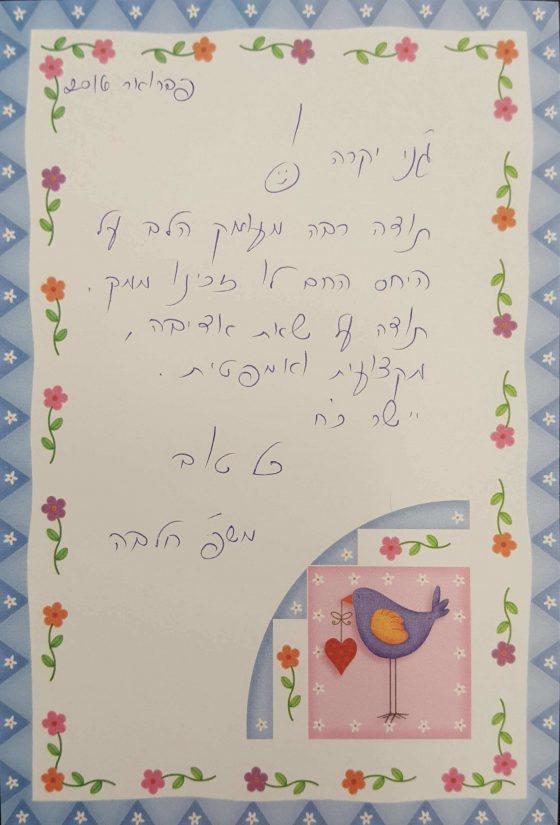 פברואר 2016
ג'ני יקרה!
תודה רבה מעומק הלב על
היחס החם לו זכינו ממך.
תודה על שאת אדיבה,
מקצועית ואמפטית.
יישר כ"ח
כל טוב
משפ' חלבה